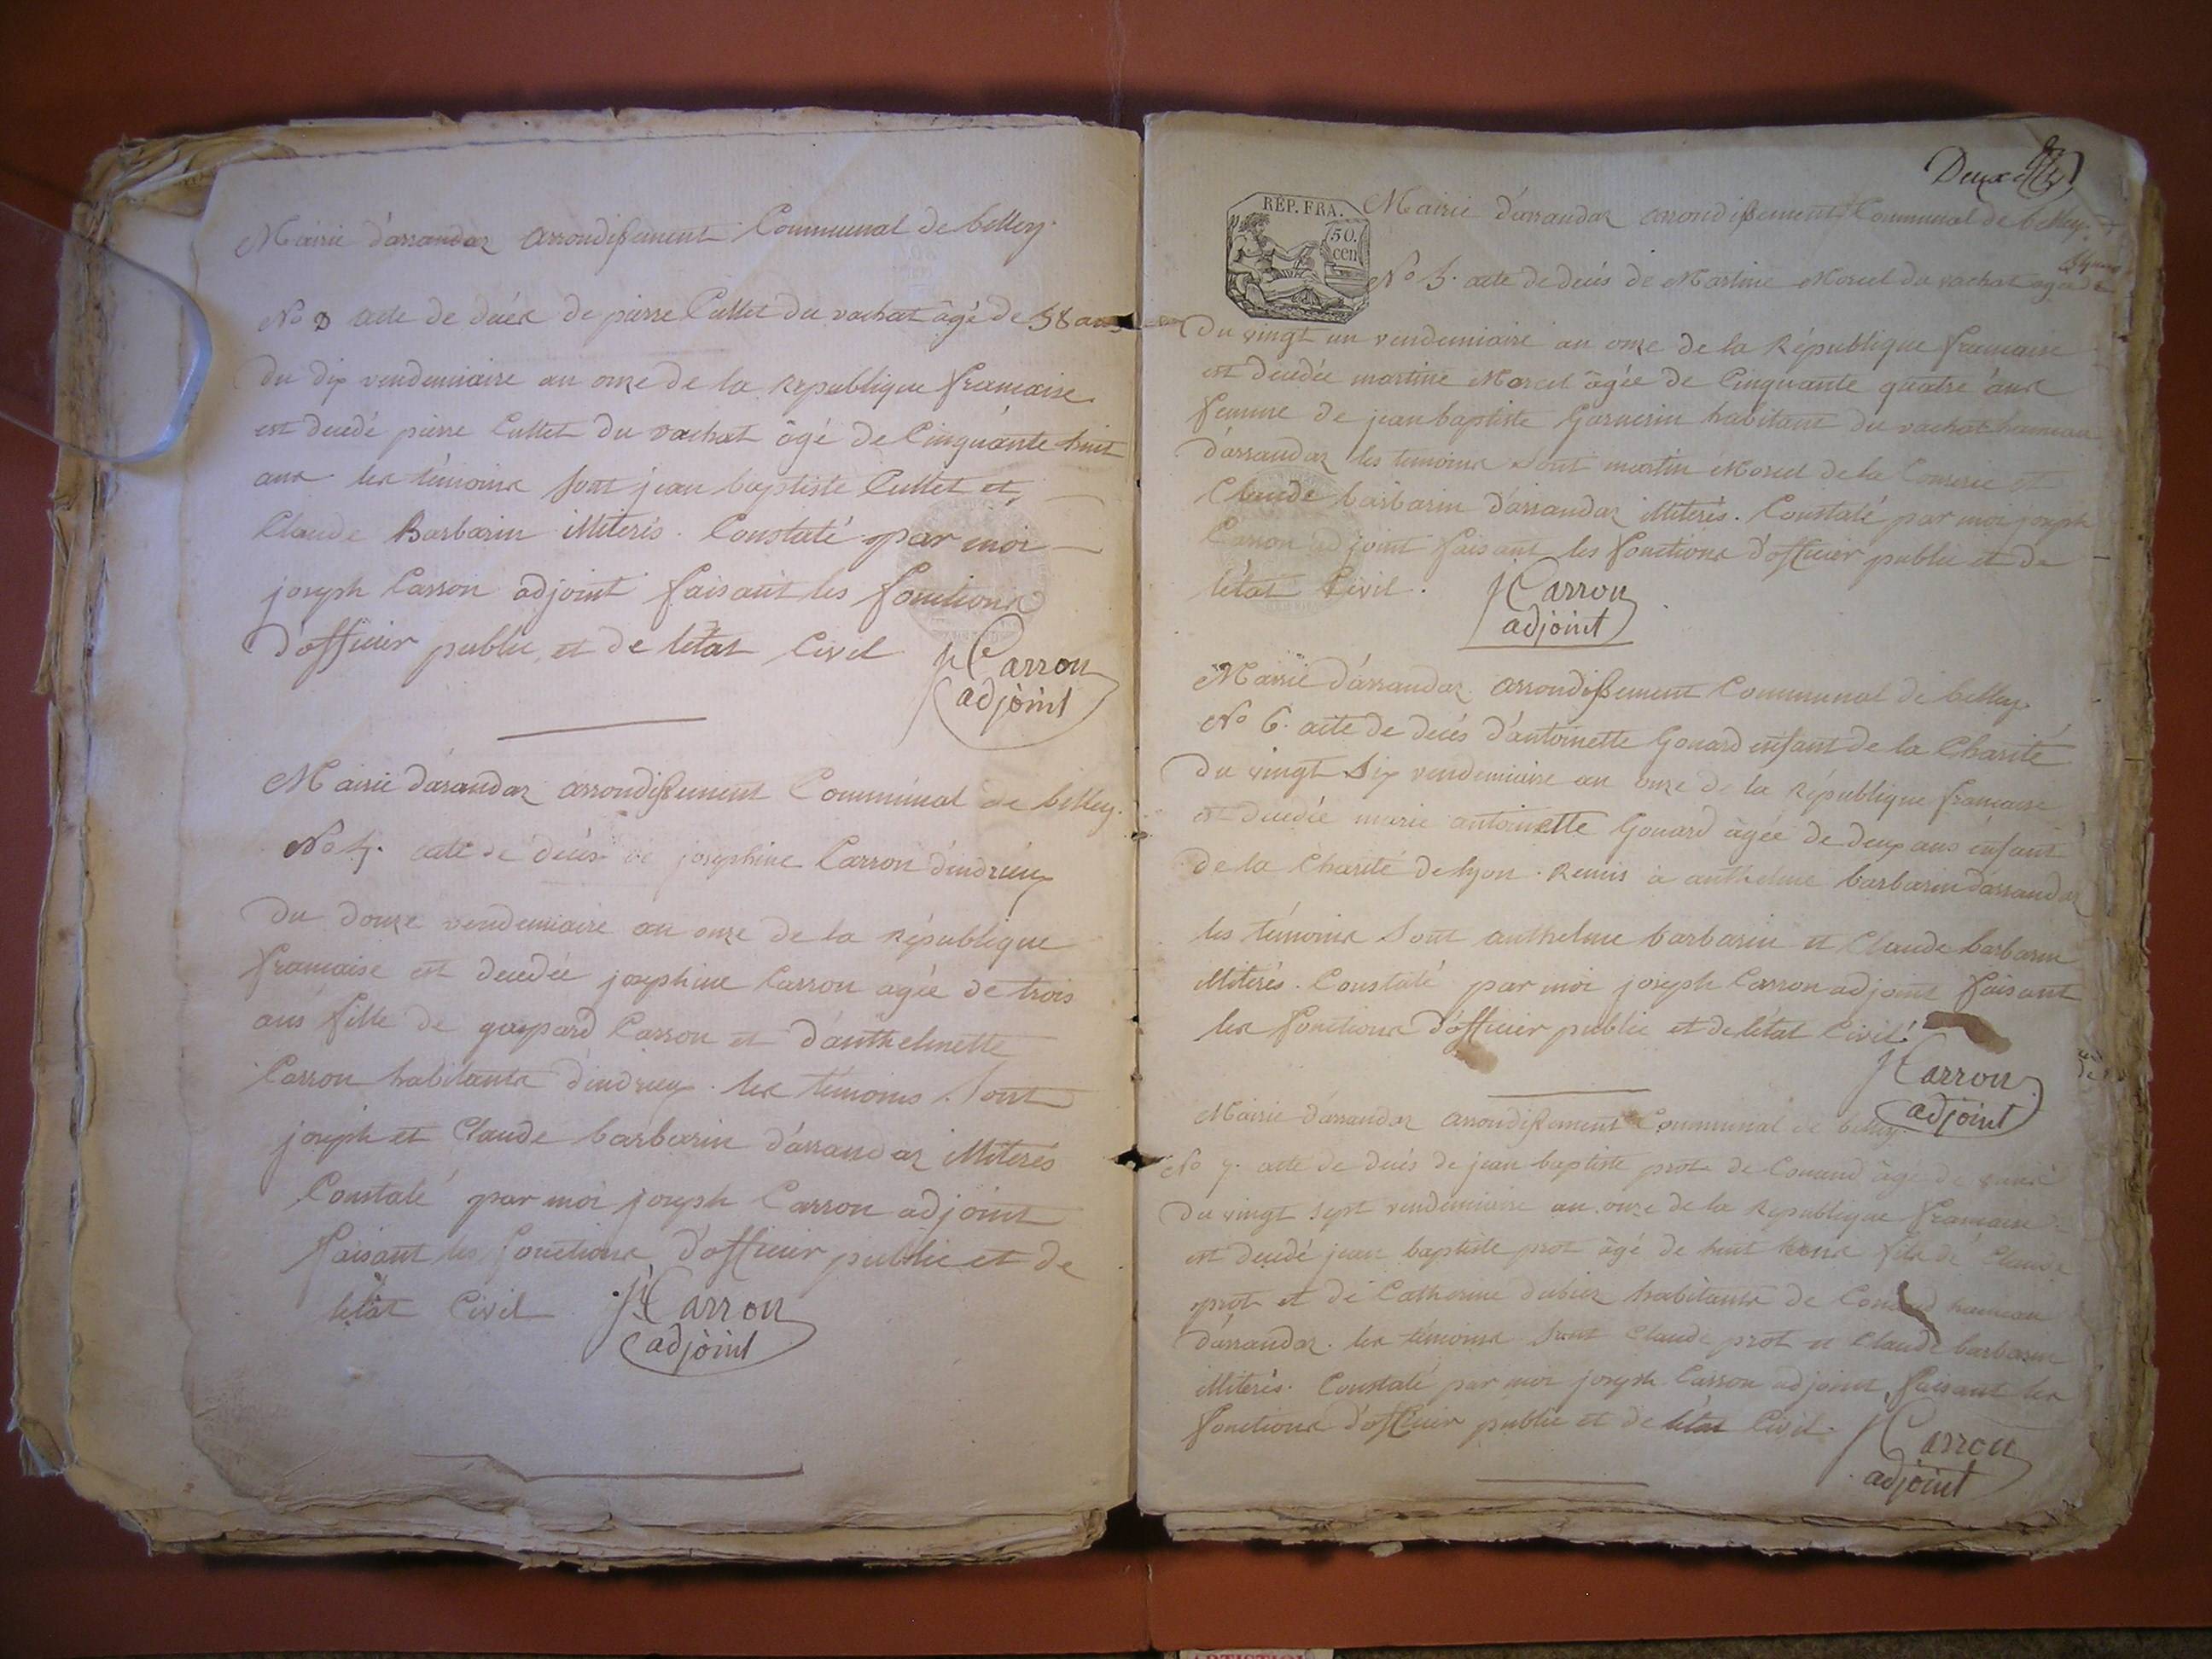 Mairie d'arrandaz arrondissement Communal de belley.
No 3 acte de décés de pierre Cullet du vachat âgé de 58 ans
Du dix vendemiaire an onze de la Republique francaise
est decedé pierre Cullet du vachat âgé de Cinquante huit
ans les témoins sont jean baptiste Cullet et
Claude Barbarin illiterés. Constaté par moi
joseph Carron adjoint faisant les fonctions
d'officier public et de létat Civil
J Carron
adjoint
Mairie d'arandaz arrondissement Communal de belley.
No 4. acte de décés de josephine Carron d'indrieux
Du douze vendemiaire an onze de la République
francaise est decedée josephine Carron agée de trois
ans fille de gaspard Carron et d'anthelmette
Carron habitants d'indrieux. les témoins Sont
joseph et Claude barbarin d'arrandaz illiterés
Constaté par moi joseph Carron adjoint
faisant les fonctions d'officier public et de
létat Civil
J Carron
adjoint
Deux
REP. FRA.
50.
cen
Mairie d'arrandaz arrondissement Communal de belley.
No 5. acte de decés de Martine Morcel du vachat agée de
Du vingt un vendemiaire an onze de la République francaise
est decedée martine Morcel âgée de Cinquante quatre ans
femme de jean baptiste Garnerin habitant du vachat hameau
d'arrandaz les temoins sont martin Morcel de la et
Claude barbarin d'arrandaz illiterés. Constaté par moi joseph
Carron adjoint faisant les fonctions d'officier public et de
létat Civil.
J Carron
adjoint
Mairie d'arrandaz arrondissement Communal de belley.
No 6. acte de decés d'antoinette Gonard enfant de la Charité
Du vingt Six vendemiaire an onze de la République francaise
est decedée marie antoinette Gonard âgée de deux ans enfant
de la Charité de lyon. Remis a anthelme barbarin d'arrandaz
les témoins Sont anthelme barbarin et Claude barbarin
illiterés. Constaté par moi joseph Carron adjoint faisant
les fonctions d'officier public et de létat Civil.
J Carron
adjoint
Mairie d'arrandaz arrondissement Communal de belley.
No 7. acte de decés de jean baptiste prot de Conand âgé de
Du vingt sept vendemiaire an onze de la Republique francaise
est decedé jean baptiste prot âgé de huit fils de Claude
prot et de Catherine dubiez habitants de Conand hameau
d'arrandaz. les témoins Sont Claude prot et Claude barbarin
illiterés. Constaté par moi joseph Carron adjoint faisant les
fonctions d'officier public et de létat Civil.
J Carron
adjoint